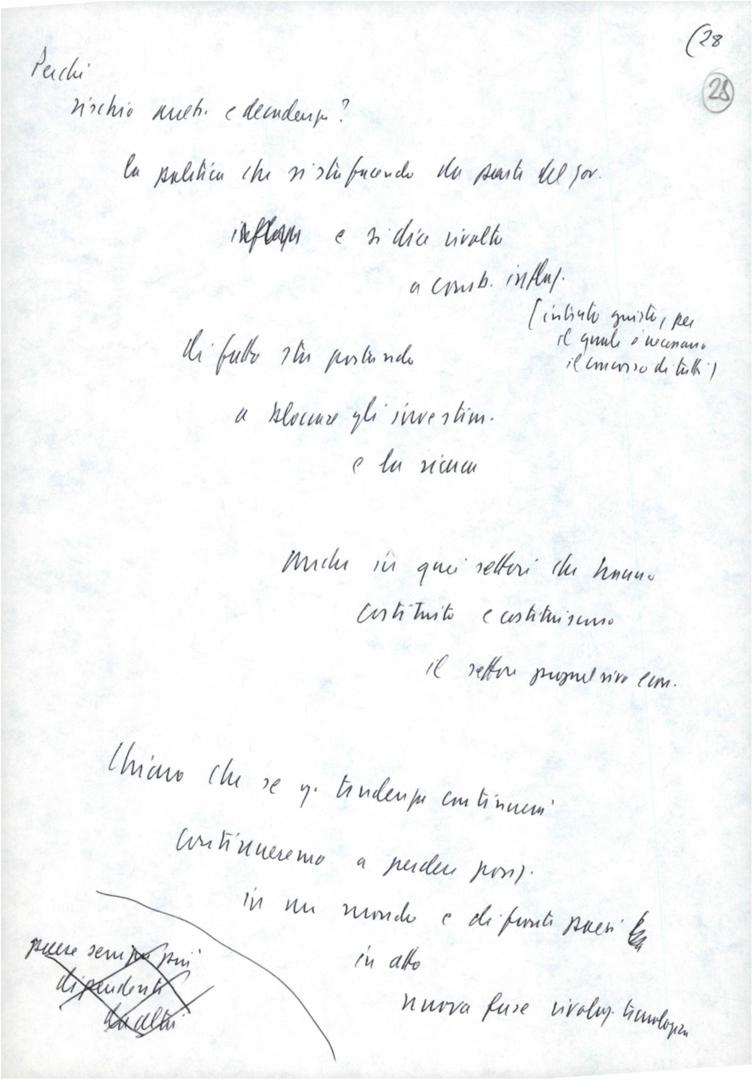 (28
28
Perchè
rischio arretr. e decadenza?
la politica che si sta facendo da parte del gov.
e si dice rivolta
a comb. inflaz.
(intento giusto, per
il quale è necessario
il concorso di tutti)
di fatto sta portando
a bloccare gli investim.
e la ricerca
anche in quei settori che hanno
costituito e costituiscono
il settore propulsivo econ.
Chiaro che se q. tendenza continuerà
continueremo a perdere posiz.
in un mondo e di fronti paesi
in atto
nuova fase rivoluz. tecnologica
paese sempre più
dipendente
da altri